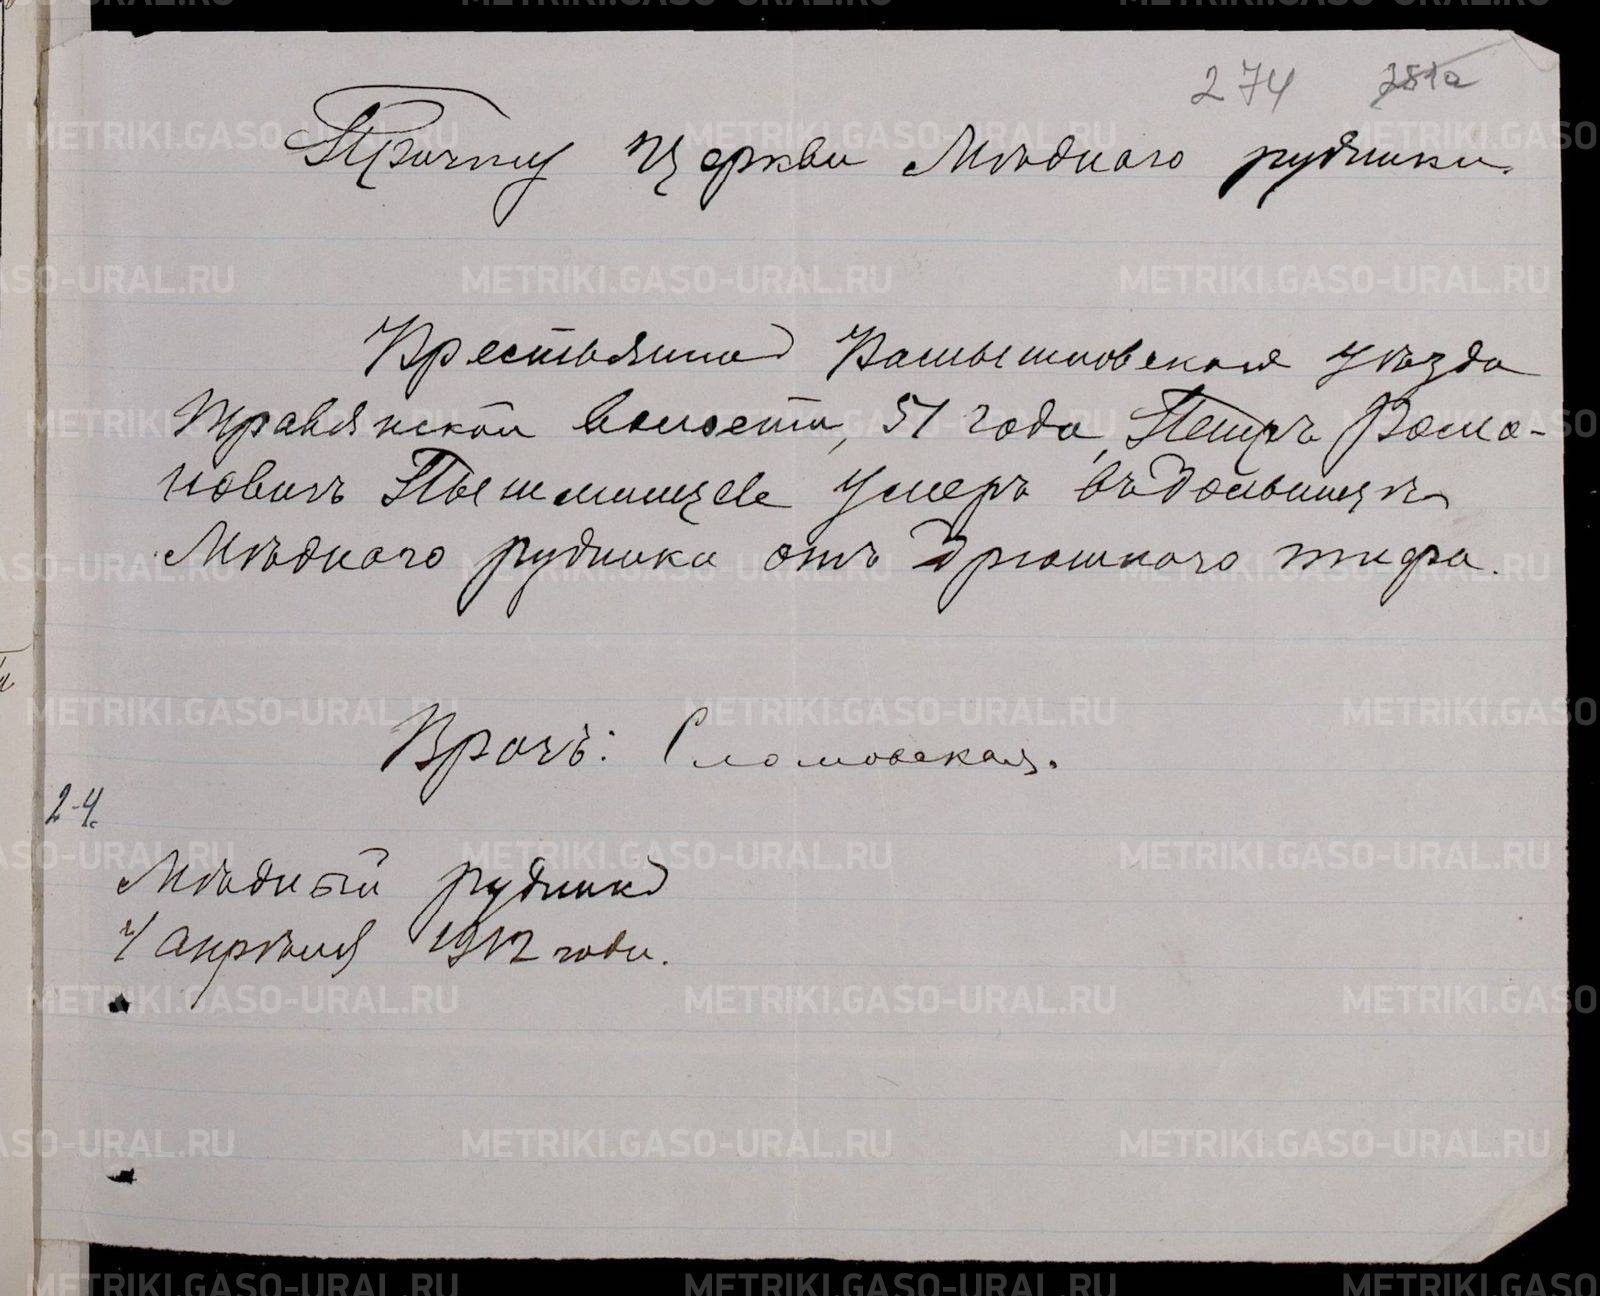 274 251а
Причту церкви Мѣднаго рудника.
Крестьянинъ Камышловскаго уѣзда
Травянской волости, 51 года, Петръ Рома-
новичъ Пышминцевъ умеръ въ больницѣ
Мѣднаго рудника отъ брюшного тифа.
Врачъ: Сломовская.
2-4.
Мѣдный рудникъ
4 апрѣля 1912 года.
METRIKI.GASO-URAL.RU